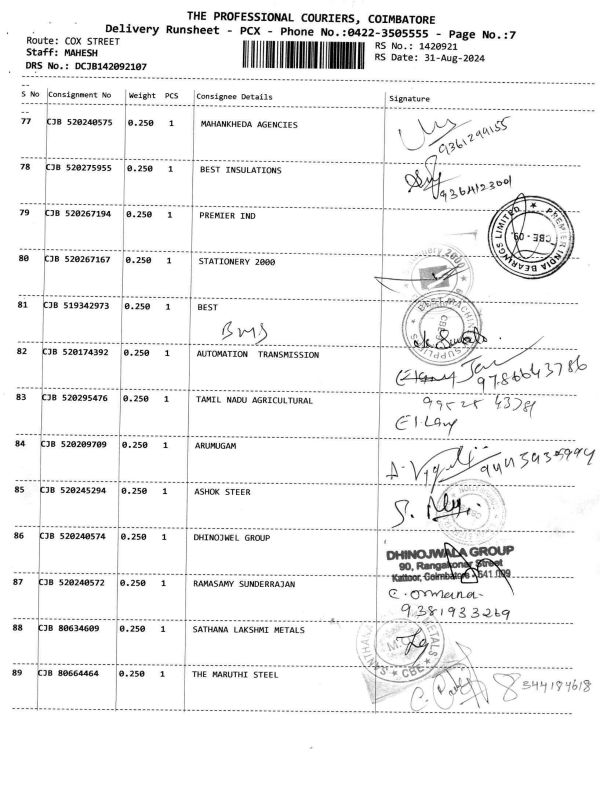 THE PROFESSIONAL COURIERS, COIMBATORE
Delivery Runsheet - PCX - Phone No.:0422-3505555 - Page No.:7
Route: COX STREET
RS No.: 1420921
Staff: MAHESH
RS Date: 31-Aug-2024
DRS No.: DCJB142092107
S No Consignment No Weight PCS Consignee Details Signature
77 CJB 520240575 0.250 1 MAHANKHEDA AGENCIES
9361299155
78 CJB 520275955 0.250 1 BEST INSULATIONS
79 CJB 520267194 0.250 1 PREMIER IND
PREMIER INDIA BEARINGS LIMITED
CBE-09
80 CJB 520267167 0.250 1 STATIONERY 2000
81 CJB 519342973 0.250 1 BEST
BMS
82 CJB 520174392 0.250 1 AUTOMATION TRANSMISSION
9786643786
83 CJB 520295476 0.250 1 TAMIL NADU AGRICULTURAL
84 CJB 520209709 0.250 1 ARUMUGAM
85 CJB 520245294 0.250 1 ASHOK STEER
86 CJB 520240574 0.250 1 DHINOJWEL GROUP
DHINOJWALA GROUP
90, Rangakonar Street
Kattoor, Coimbatore - 641 009
87 CJB 520240572 0.250 1 RAMASAMY SUNDERRAJAN
9381933269
88 CJB 80634609 0.250 1 SATHANA LAKSHMI METALS
89 CJB 80664464 0.250 1 THE MARUTHI STEEL
8344184618